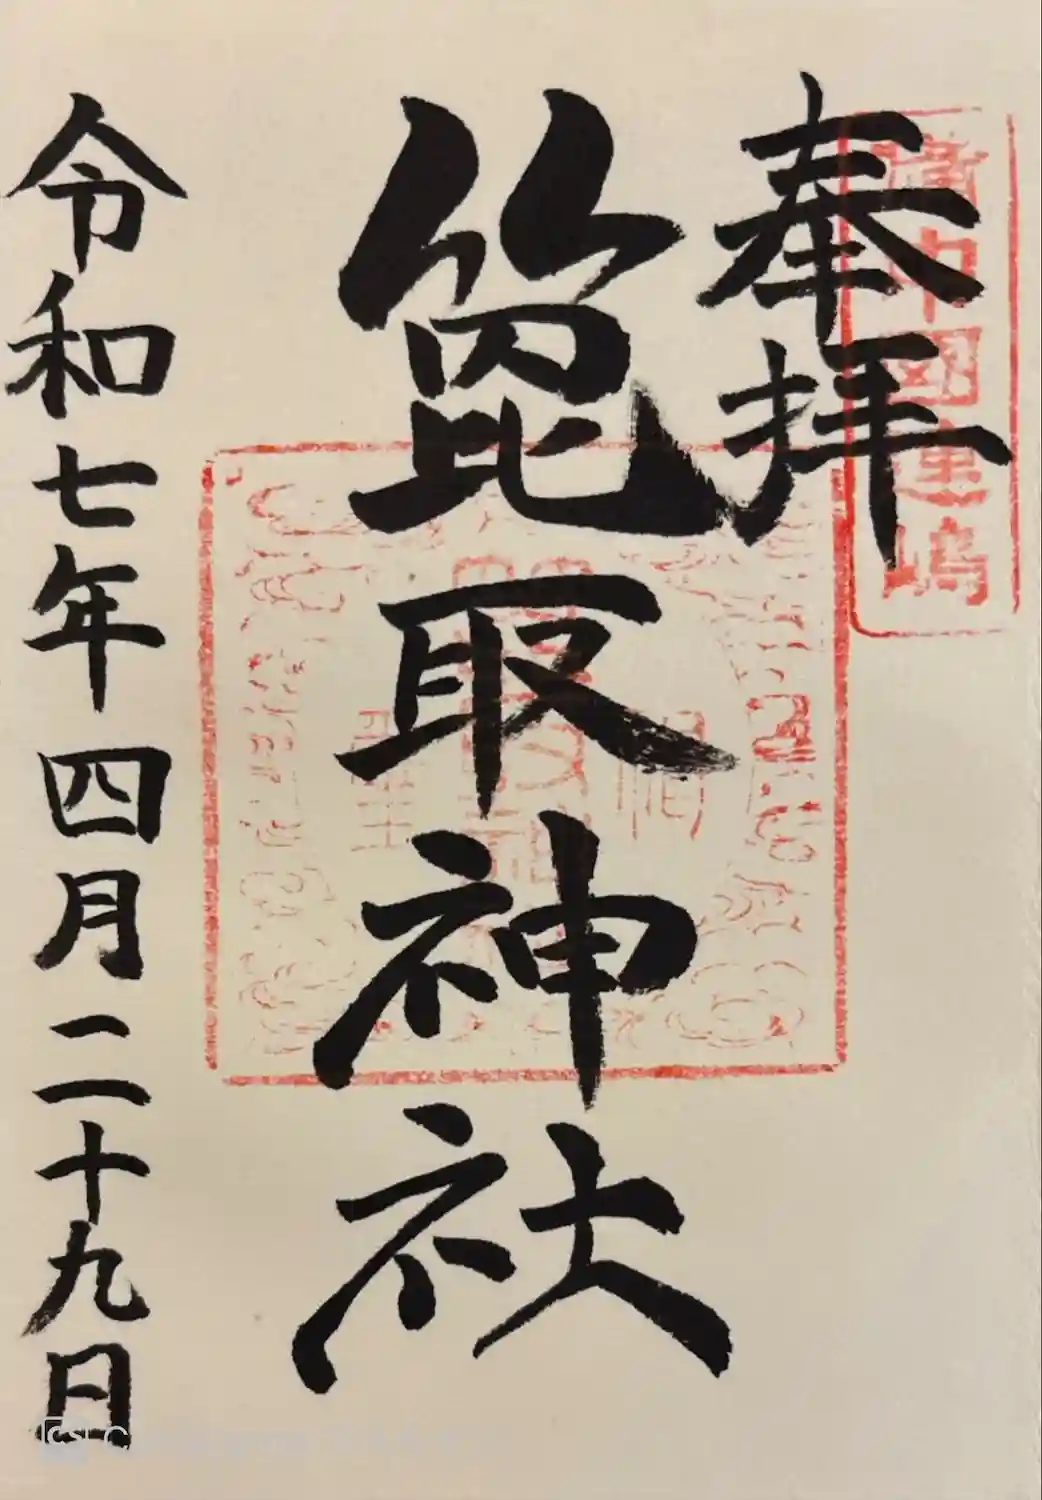 奉拝
備中國連嶋
箆取神社
令和七年四月二十九日